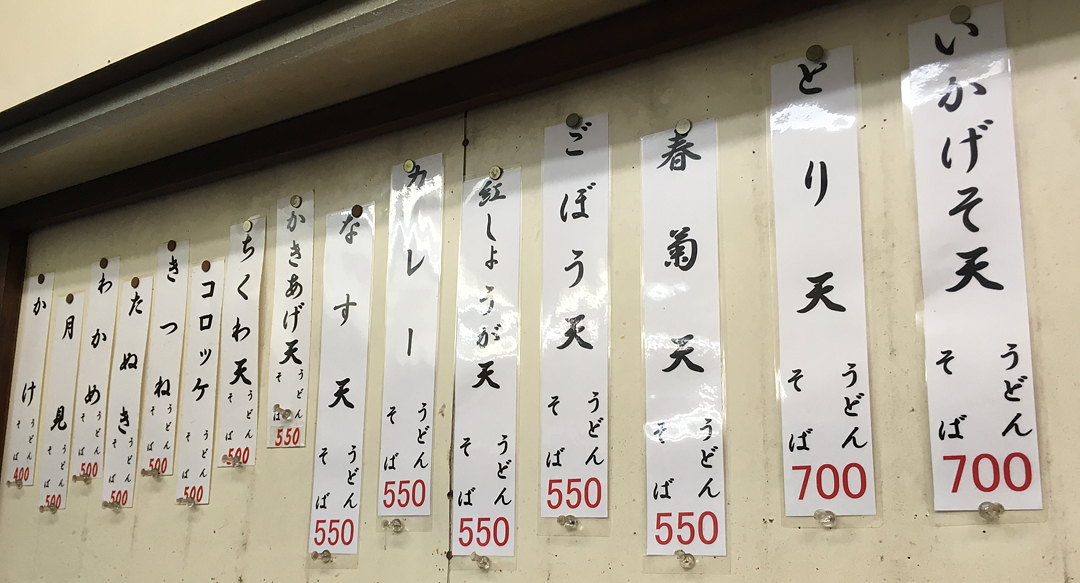 いかげそ天
うどん
そば
700
とり天
うどん
そば
700
春菊天
うどん
そば
550
ごぼう天
うどん
そば
550
紅しょうが天
うどん
そば
550
カレー
うどん
そば
550
なす天
うどん
そば
550
かきあげ天
うどん
そば
550
ちくわ天
うどん
そば
500
コロッケ
うどん
そば
500
きつね
うどん
そば
500
たぬき
うどん
そば
500
わかめ
うどん
そば
500
月見
うどん
そば
500
かけ
うどん
そば
400